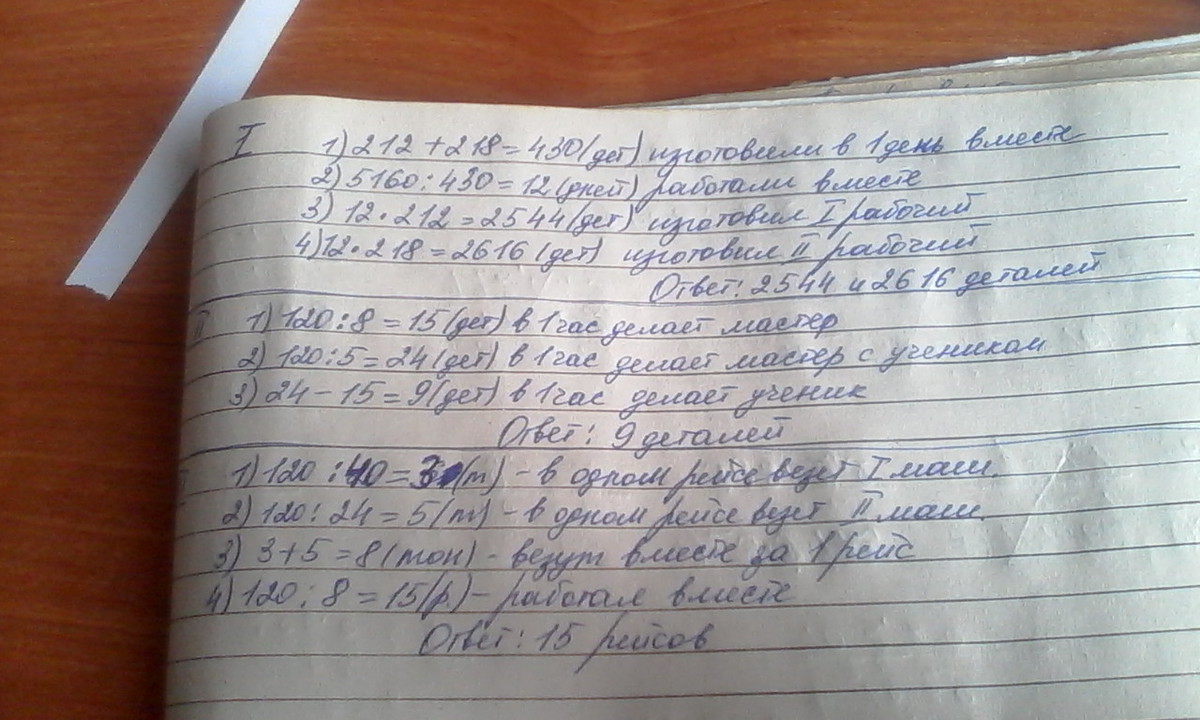 I 1) 212 + 218 = 430 (дет) изготовили в 1 день вместе
2) 5160 : 430 = 12 (дней) работали вместе
3) 12 · 212 = 2544 (дет) изготовил I рабочий
4) 12 · 218 = 2616 (дет) изготовил II рабочий
Ответ: 2544 и 2616 деталей
II 1) 120 : 8 = 15 (дет) в 1 час делает мастер
2) 120 : 5 = 24 (дет) в 1 час делает мастер с учеником
3) 24 - 15 = 9 (дет) в 1 час делает ученик
Ответ: 9 деталей
1) 120 : 40 = 3 (т) - в одном рейсе везет I маш.
2) 120 : 24 = 5 (т) - в одном рейсе везет II маш.
3) 3 + 5 = 8 (тон) - везут вместе за 1 рейс
4) 120 : 8 = 15 (р.) - работал вместе
Ответ: 15 рейсов